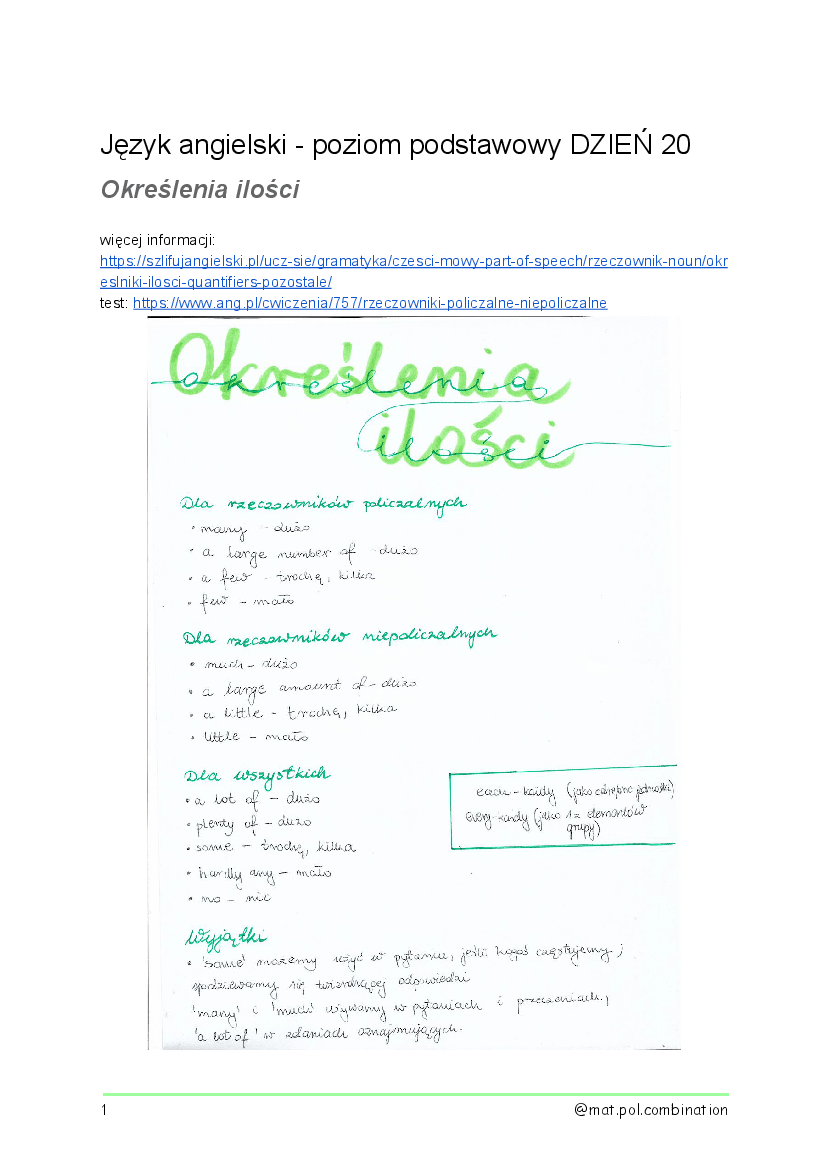 Język angielski - poziom podstawowy DZIEŃ 20
Określenia ilości
więcej informacji:
https://szlifujangielski.pl/ucz-sie/gramatyka/czesci-mowy-part-of-speech/rzeczownik-noun/okr
eslniki-ilosci-quantifiers-pozostale/
test: https://www.ang.pl/cwiczenia/757/rzeczowniki-policzalne-niepoliczalne
Określenia
ilości
Dla rzeczowników policzalnych
• many - dużo
• a large number of - dużo
• a few - trochę, kilka
• few - mało
Dla rzeczowników niepoliczalnych
• much - dużo
• a large amount of - dużo
• a little - trochę, kilka
• little - mało
Dla wszystkich
• a lot of - dużo
• plenty of - dużo
• some - trochę, kilka
• hardly any - mało
• no - nic
each - każdy (jako odrębne jednostki)
every - każdy (jako 1 z elementów
grupy)
Wyjątki
• 'some' możemy użyć w pytaniu, jeśli kogoś częstujemy;
spodziewamy się twierdzącej odpowiedzi
'many' i 'much' używamy w pytaniach i przeczeniach,
'a lot of' w zdaniach oznajmujących.
1
@mat.pol.combination